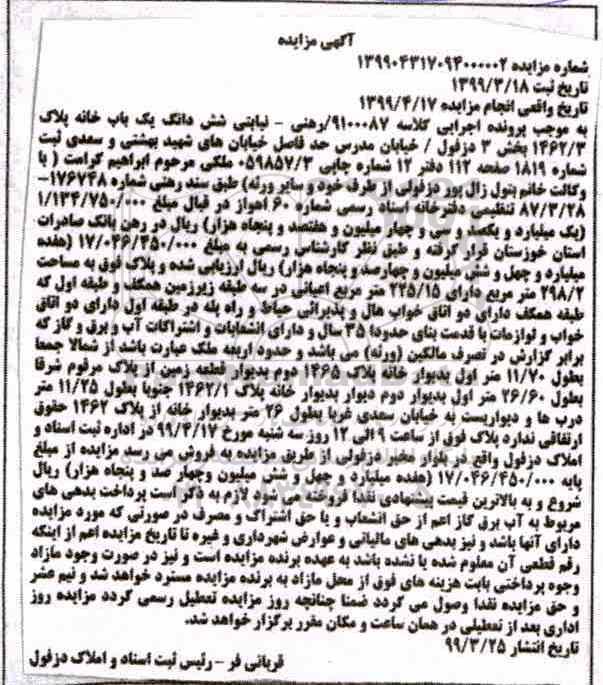 آگهی مزایده
شماره مزایده ۱۳۹۹۰۴۳۱۷۰۹۴۰۰۰۰۰۲
تاریخ ثبت ۱۳۹۹/۳/۱۸
تاریخ واقعی انجام مزایده ۱۳۹۹/۴/۱۷
به موجب پرونده اجرایی کلاسه ۹۱۰۰۰۸۷/رهنی - نیابتی شش دانگ یک باب خانه پلاک
۱۴۶۲/۳ بخش ۳ دزفول / خیابان مدرس حد فاصل خیابان های شهید بهشتی و سعدی ثبت
شماره ۱۸۱۹ صفحه ۱۱۲ دفتر ۱۲ شماره چاپی ۰۵۹۸۵۷/۳ ملکی مرحوم ابراهیم کرامت ( با
وکالت خانم بتول زال پور دزفولی از طرف خود و سایر ورثه) طبق سند رهنی شماره ۱۷۶۷۴۸-
۸۷/۳/۲۸ تنظیمی دفترخانه اسناد رسمی شماره ۶۰ اهواز در قبال مبلغ ۱/۱۳۴/۷۵۰/۰۰۰
(یک میلیارد و یکصد و سی و چهار میلیون و هفتصد و پنجاه هزار) ریال در رهن بانک صادرات
استان خوزستان قرار گرفته و طبق نظر کارشناس رسمی به مبلغ ۱۷/۰۴۶/۴۵۰/۰۰۰ (هفده
میلیارد و چهل و شش میلیون و چهارصد و پنجاه هزار) ریال ارزیابی شده و پلاک فوق به مساحت
۲۹۸/۲ متر مربع دارای ۲۲۵/۱۵ متر مربع اعیانی در سه طبقه زیرزمین همکف و طبقه اول که
طبقه همکف دارای دو اتاق خواب هال و پذیرائی حیاط و راه پله در طبقه اول دارای دو اتاق
خواب و لوازمات با قدمت بنای حدودا ۳۵ سال و دارای انشعابات و اشتراکات آب و برق و گاز که
برابر گزارش در تصرف مالکین (ورثه) می باشد و حدود اربعه ملک عبارت باشد از شمالا جمعا
بطول ۱۱/۷۰ متر اول بدیوار خانه پلاک ۱۴۶۵ دوم بدیوار قطعه زمین از پلاک مرقوم شرقا
بطول ۲۶/۶۰ متر اول بدیوار دوم دیوار بدیوار خانه پلاک ۱۴۶۲/۱ جنوبا بطول ۱۱/۲۵ متر
درب ها و دیواریست به خیابان سعدی غربا بطول ۲۶ متر بدیوار خانه از پلاک ۱۴۶۲ حقوق
ارتفاقی ندارد پلاک فوق از ساعت ۹ الی ۱۲ روز سه شنبه مورخ ۹۹/۴/۱۷ در اداره ثبت اسناد و
املاک دزفول واقع در بلوار مخبر دزفولی از طریق مزایده به فروش می رسد مزایده از مبلغ
پایه ۱۷/۰۴۶/۴۵۰/۰۰۰ (هفده میلیارد و چهل و شش میلیون وچهار صد و پنجاه هزار) ریال
شروع و به بالاترین قیمت پیشنهادی نقدا فروخته می شود لازم به ذکر است پرداخت بدهی های
مربوط به آب برق گاز اعم از حق انشعاب و یا حق اشتراک و مصرف در صورتی که مورد مزایده
دارای آنها باشد و نیز بدهی های مالیاتی و عوارض شهرداری و غیره تا تاریخ مزایده اعم از اینکه
رقم قطعی آن معلوم شده یا نشده باشد به عهده برنده مزایده است و نیز در صورت وجود مازاد
وجوه پرداختی بابت هزینه های فوق از محل مازاد به برنده مزایده مسترد خواهد شد و نیم عشر
و حق مزایده نقدا وصول می گردد ضمنا چنانچه روز مزایده تعطیل رسمی گردد مزایده روز
اداری بعد از تعطیلی در همان ساعت و مکان مقرر برگزار خواهد شد.
تاریخ انتشار ۹۹/۳/۲۵
قربانی فر - رئیس ثبت اسناد و املاک دزفول